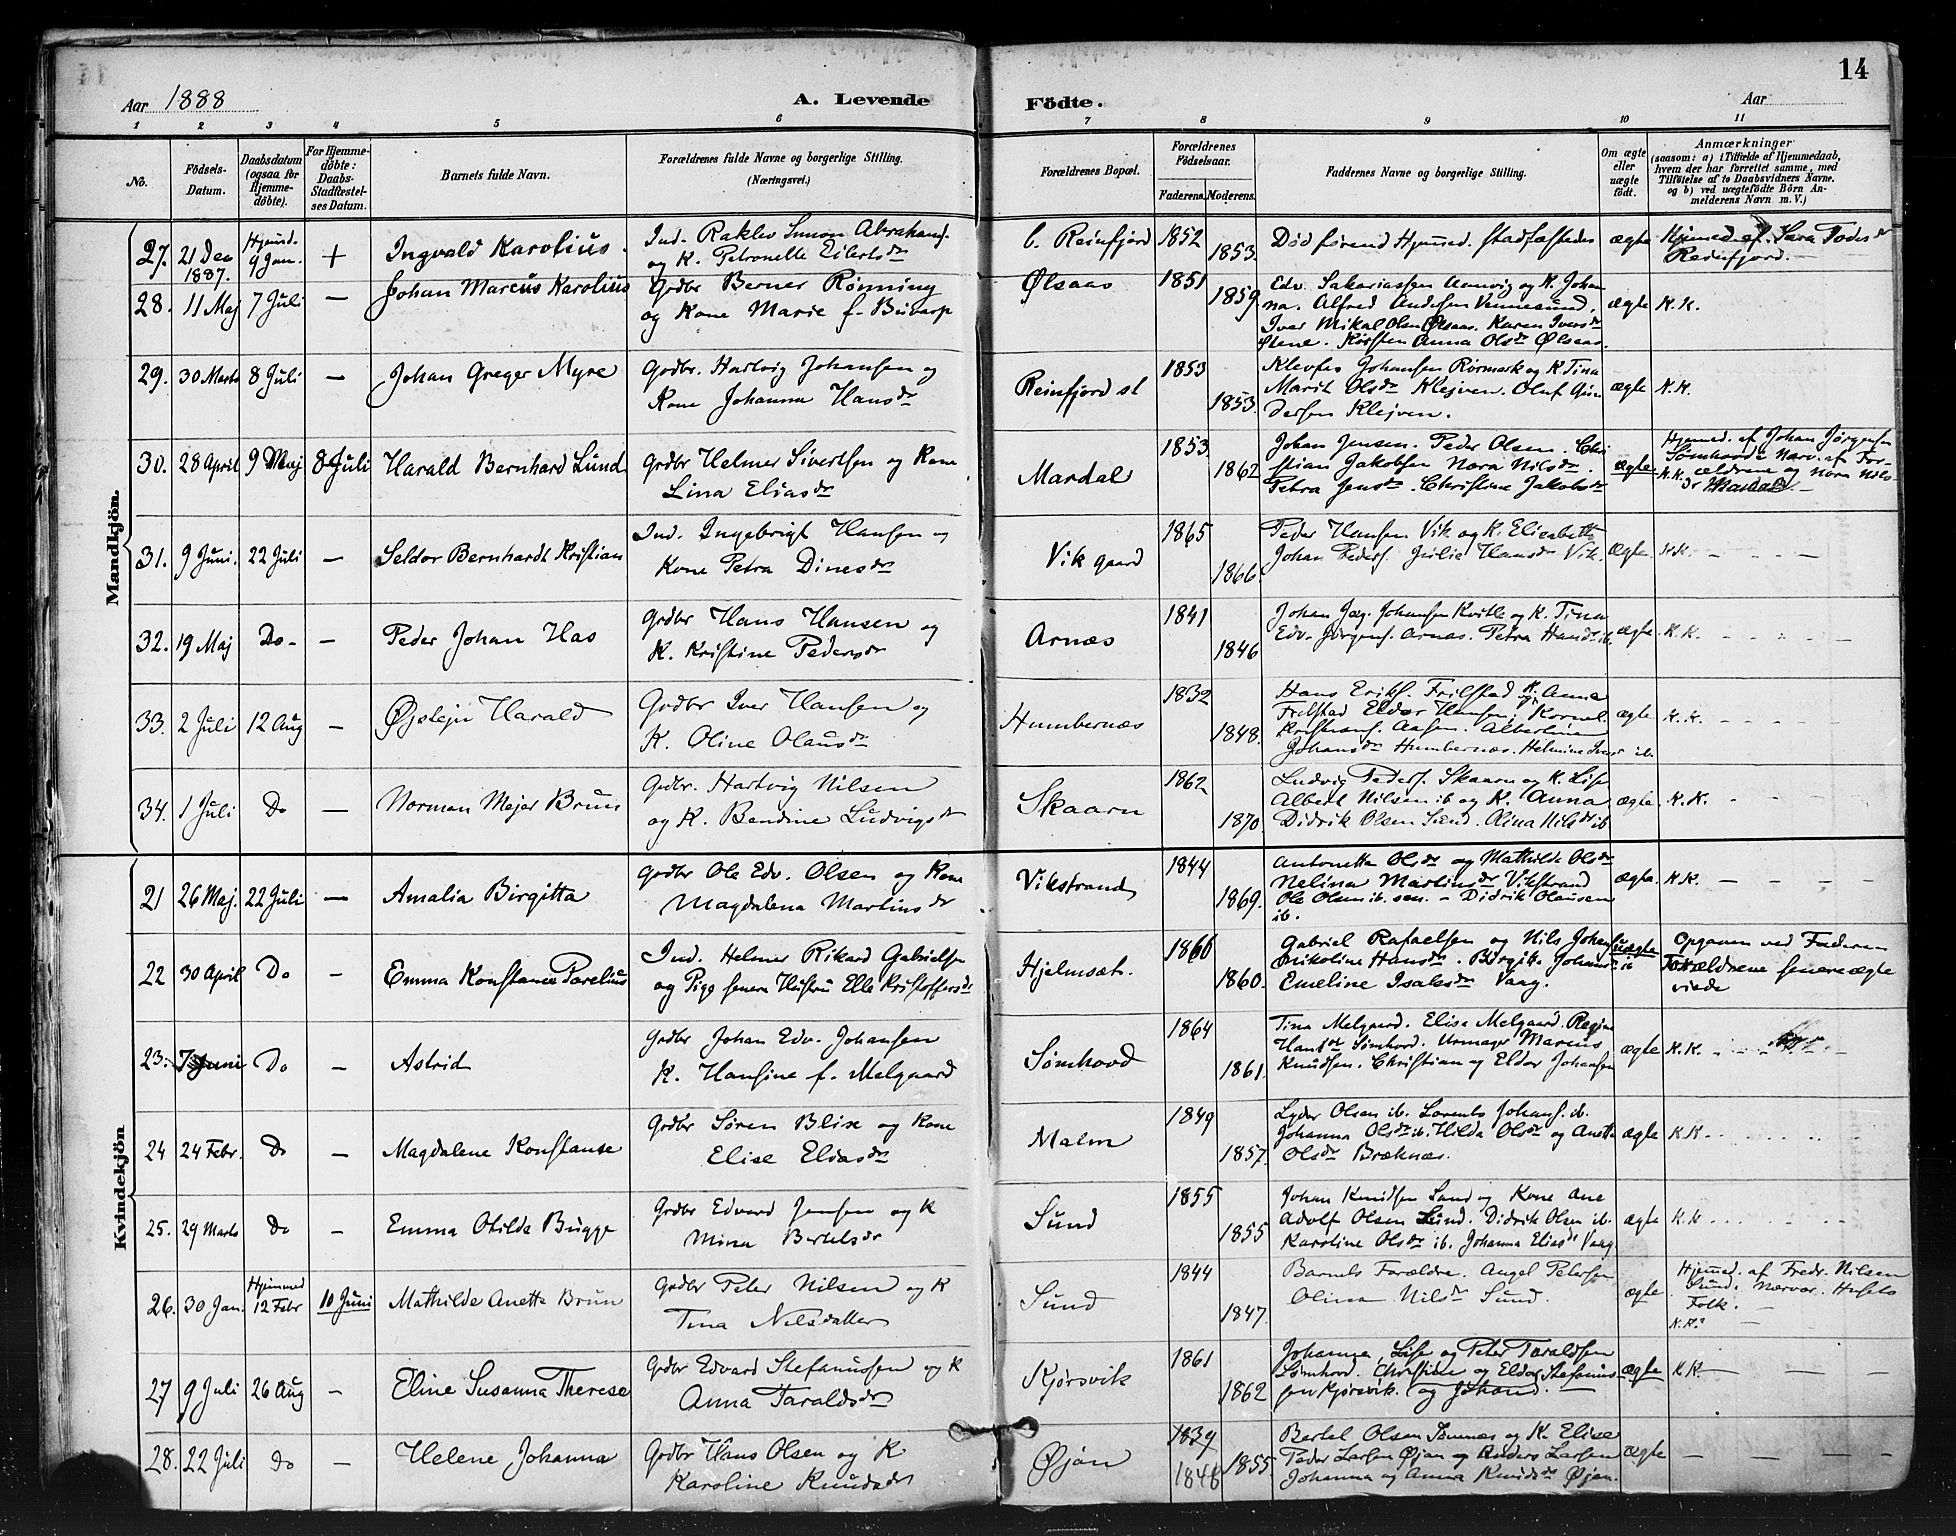 14
Aar 1888 A. Levende Födte. Aar
1 2 3 4 5 6 7 8 9 10 11
No.
Födsels-Datum.
Daabsdatum (ogsaa for Hjemme-döbte).
For Hjemme-döbte: Daabs-Stadfæstel-ses Datum.
Barnets fulde Navn.
Forældrenes fulde Navne og borgerlige Stilling.
(Næringsvei.)
Forældrenes Bopæl.
Forældrenes Födselsaar.
Faderens. Moderens.
Faddernes Navne og borgerlige Stilling.
Om ægte eller uægte födt.
Anmærkninger
(saasom: a) i Tilfælde af Hjemmedaab,
hvem der har forrettet samme, med
Tilföielse af to Daabsvidners Navne.
og b) ved uægtefödte Börn An-
melderens Navn m. V.)
Mandkjön.
27. 21 Dec 1887. Hjemd. 9 Jan. + Ingvald Karolius. Ind. Raklev Simon Abrahams. og K. Petronelle Eilertsdr b. Reinfjord 1852 1853 Død førend Hjemmed. stadfæstedes ægte Hjemmed af Sara Todesdr Reinfjord. —
28. 11 Maj 7 Juli — Johan Marcus Karolius Grdbr Berner Rönning og Kone Marie f. Bustrop Ølsaas 1851 1859 Edv. Sakariassen Aamvig og K. Johan
na. Alfred Andersen Vennesund.
Iver Mikal Olsen Ølsaas. Karen Iversdr
Stene. Kirsten Anna Olsdr Ølsaas. ægte K. K.
29. 30 Marts 8 Juli — Johan Greger Myre Grdbr. Hartvig Johansen og Kone Johanna Hansdr Reinfjord st 1853 1853 Klevfas Johansen Rörmark og K Tina
Marit Olsdr Klejven. Oluf Gun
dersen Klejven. ægte K. K.
30. 28 April 9 Maj 8 Juli Harald Bernhard Lund Grdbr Helmer Sivertsen og Kone Lina Eliasdr Mardal 1853 1862 Johan Jensen. Peder Olsen. Chri
stian Jakobsen Nora Nilsdr.
Petra Jensdr. Christine Jakobsdr ægte Hjemmed. af Johan Jörgensen
Sömhovd. Nærv. af For-
K.K. ældrene og Nora Nils
dr Mardal. —
31. 9 Juni. 22 Juli — Seldor Bernhardt Kristian Ind. Ingebrigt Hansen og Kone Petra Dinesdr Vik gaard 1865 1866 Peder Hansen Vik og K. Elisabeth
Johan Peders. Julie Hansdr Vik. ægte K.K. — — — —
32. 19 Maj Do — Peder Johan Has Grdbr Hans Hansen og K. Kristine Pedersdr Arnæs 1841 1846 Johan Jæg. Johansen Kvitle og K. Tina
Edv. Jörgens. Arnæs. Petra Hansdr ib. ægte K. K.
33. 2 Juli 12 Aug — Øjstejn Harald Grdbr Iver Hansen og K. Oline Olausdr Humbernæs 1832 1848 Hans Eriks. Frilstad og K. Anna
Frilstad Eldor Hansen, Kornel.
Kristians. Aasen. Albertine
Johansdr Humbernæs. Helmine Ivers ib. ægte K. K.
34. 1 Juli Do — Norman Mejer Brun Grdbr. Hartvig Nilsen og K. Bendine Ludvigsdr Skaarn 1862 1870 Ludvig Peders. Skaarn og K. Lise
Albert Nilsen ib og K. Anna
Didrik Olsen Sund. Olina Nilsdr ib ægte K. K.
Kvindekjön
21 26 Maj. 22 Juli — Amalia Birgitta Grdbr Ole Edv. Olsen og Kone Magdalena Martinsdr Vikstrand 1844 1869. Antonetta Olsdr og Mathilde Olsdr
Nelina Martinsdr Vikstrand
Ole Olsen ib. sen. — Didrik Olausen
ib. ægte. K K. — — — —
22 30 April Do — Emma Konstance Parelius Ind. Helmer Rikard Gabrielsen og Pige senere Hustru Ella Kristoffersdr Hjelmsæt. 1866 1860. Gabriel Rafaelsen og Nils Johans
Nikoline Hansdr. Birgitte Johansdr ib
Emeline Isaksdr Vaag. uægte Opgaven ved Faderen
Forældrene senere ægte
viede
23. 7 Juni Do — Astrid Grdbr Johan Edv. Johansen K. Hansine f. Melgaard Sömhovd 1864 1861 Tina Melgaard. Elise Melgaard. Regine
Hansdr Sömhovd. Urmager Marcus
Knudsen. Christian og Eldor Johansen ægte K. K.
24 24 Febr. Do — Magdalene Konstanse Grdbr Sören Blix og Kone Elise Eliasdr Malm 1849 1857 Lyder Olsen ib. Lorents Johans. ib.
Johanna Olsdr ib. Hilda Olsdr og Anetta
Olsdr Bræknæs. ægte K K.
25. 29 Marts Do — Emma Otilde Bugge Grdbr Edvard Jensen og K Mina Bertelsdr Sund 1855 1855 Johan Knudsen Sund og Kone Ane
Adolf Olsen Sund. Didrik Olsen ib.
Karoline Olsdr ib. Johanna Eliasdr Vaag. ægte K K
26. 30 Jan. Hjemmed 12 Febr 10 Juni Mathilde Anette Brun Grdbr Peter Nilsen og K Tina Nilsdatter Sund 1844 1847 Barnets Forældre. Angel Petersen
Olina Nilsdr Sund. ægte Hjemmed. af Fredr. Nilsen
Sund. Nærvær. Husets
Folk. —
K. K. —
27 9 Juli 26 Aug — Eline Susanna Therese Grdbr Edvard Stefanussen og K Anna Taraldsdr Kjørsvik 1861 1862 Johanna, Lise og Peter Taraldsen
Sömhovd. Christine og Eldor Stefanus-
sen Kjørsvik. og Johan d. — ægte K K — — —
28. 22 Juli Do — Helene Johanna Grdbr Hans Olsen og K Karoline Knudsdr Øjan 1839 1848 1855 Bertel Olsen Sömnæs og K. Elise
Peder Larsen Øjan og Anders Larsen
Johanna og Anna Knudsdr Øjan. ægte — — — —